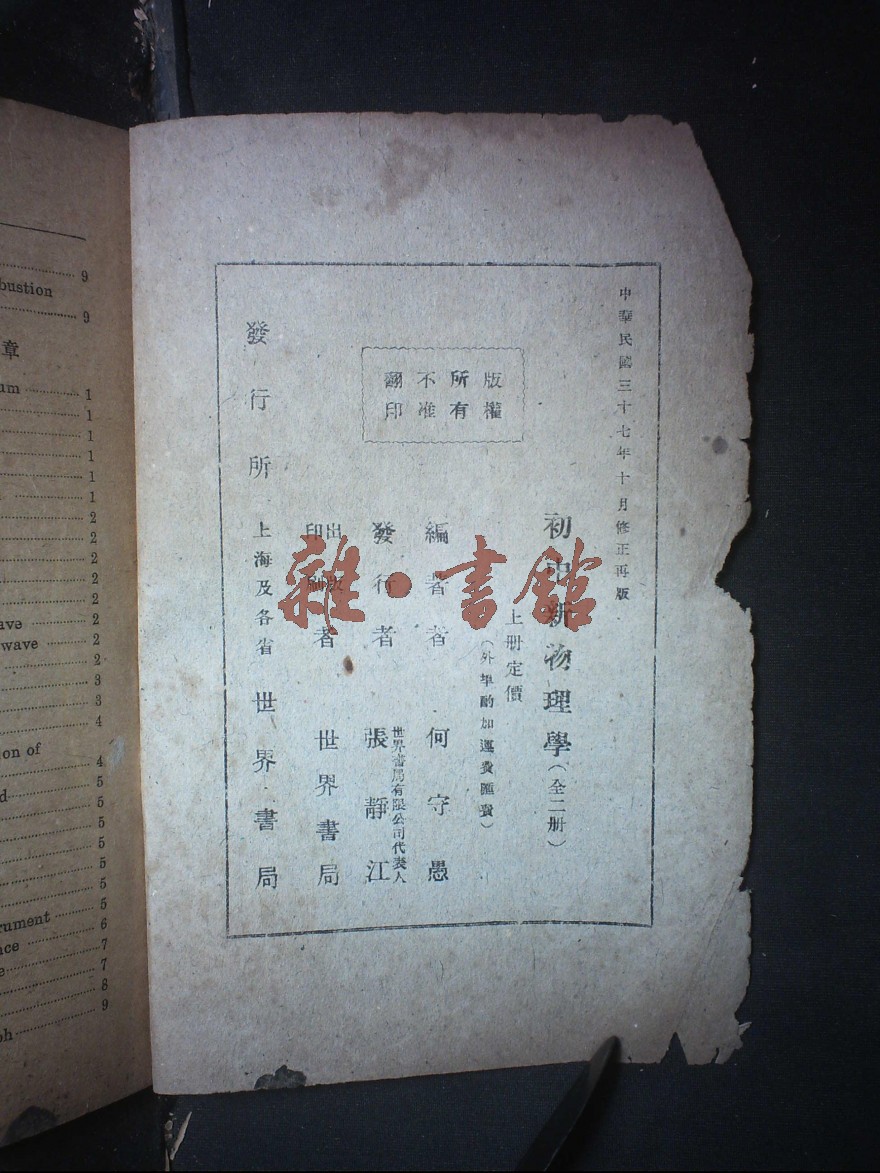 中華民國三十七年十月修正再版
初中新物理學(全二册)
上册定價
(外埠酌加運費匯費)
版權
所有
不准
翻印
編著者 何守愚
發行者 世界書局有限公司代表人 張靜江
出版
印刷者 世界書局
發行所 上海及各省 世界書局
雜·書館
9
bustion
9
章
um 1
1
1
1
1
2
2
2
2
ave 2
wave 2
2
3
3
4
ion of
4
d 5
5
5
5
5
5
rument
nce 6
e 7
7
8
oh 9